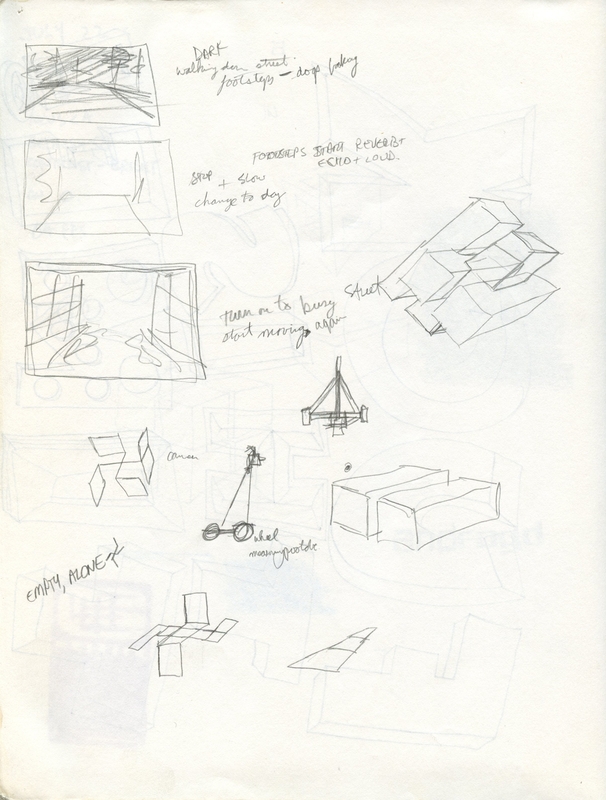 DARK
walking down street.
footsteps — dogs barking
FOOTSTEPS START REVERB +
ECHO + LOUD.
STOP + SLOW
change to day
Street
turn on to busy
start moving again
wheel
EMPTY, ALONE